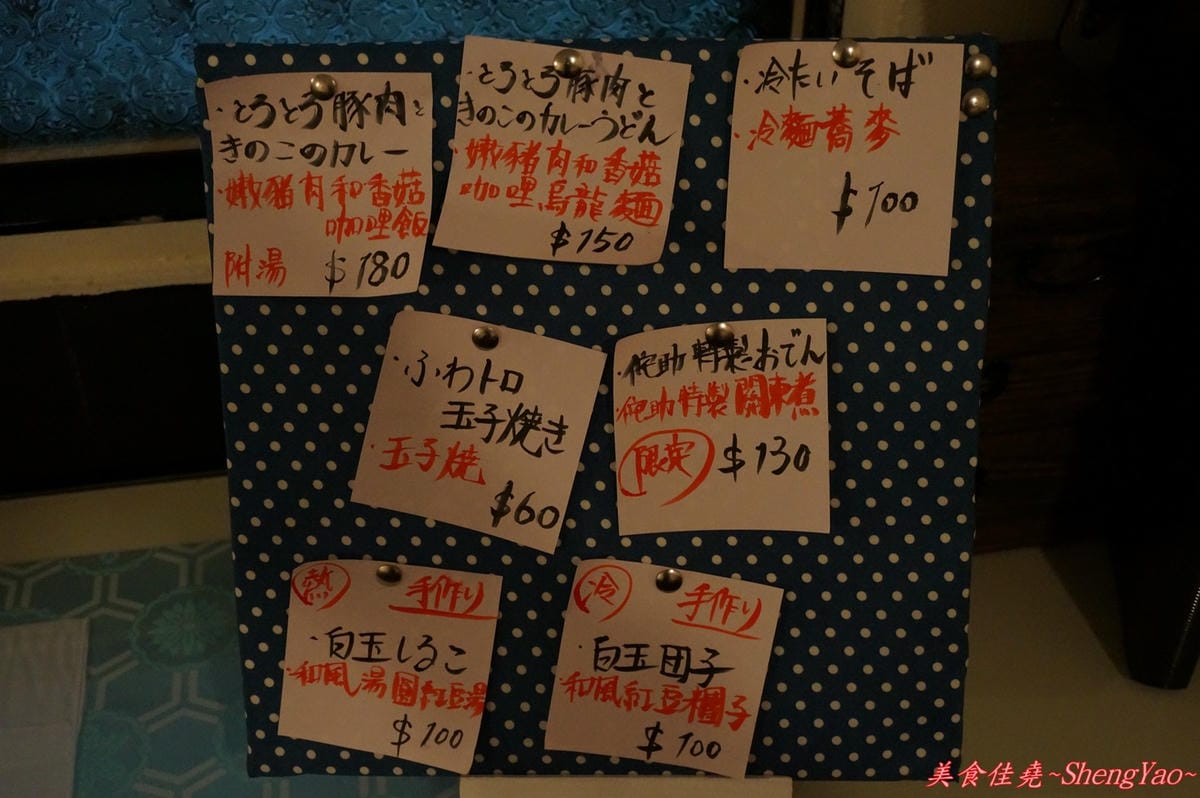 ・とろとろ豚肉と
きのこのカレー
・嫩豬肉和香菇
咖哩飯
附湯 $180
・とろとろ豚肉と
きのこのカレーうどん
・嫩豬肉和香菇
咖哩烏龍麵
$150
・冷たいそば
・冷麵蕎麥
$100
・ふわトロ
玉子焼き
・玉子燒
$60
・侘助特製おでん
・侘助特製關東煮
限定 $130
熱 手作り
・白玉しるこ
・和風湯圓紅豆湯
$100
冷 手作り
・白玉団子
・和風紅豆糰子
$100
美食佳堯~ShengYao~